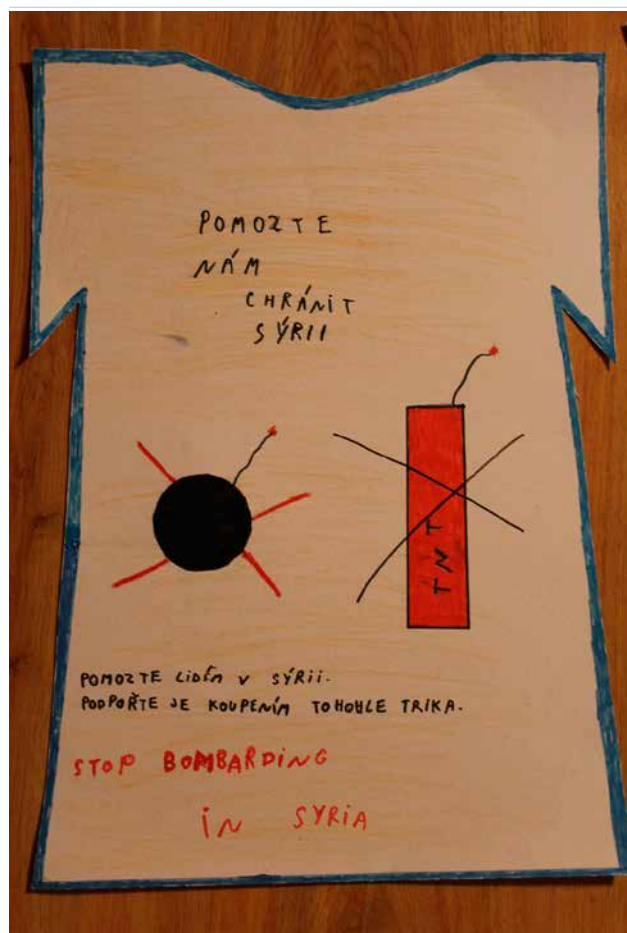 POMOZTE
NÁM
CHRÁNIT
SÝRII
TNT
POMOZTE LIDÉM V SÝRII.
PODPOŘTE JE KOUPENÍM TOHOHLE TRIKA.
STOP BOMBARDING
IN SYRIA